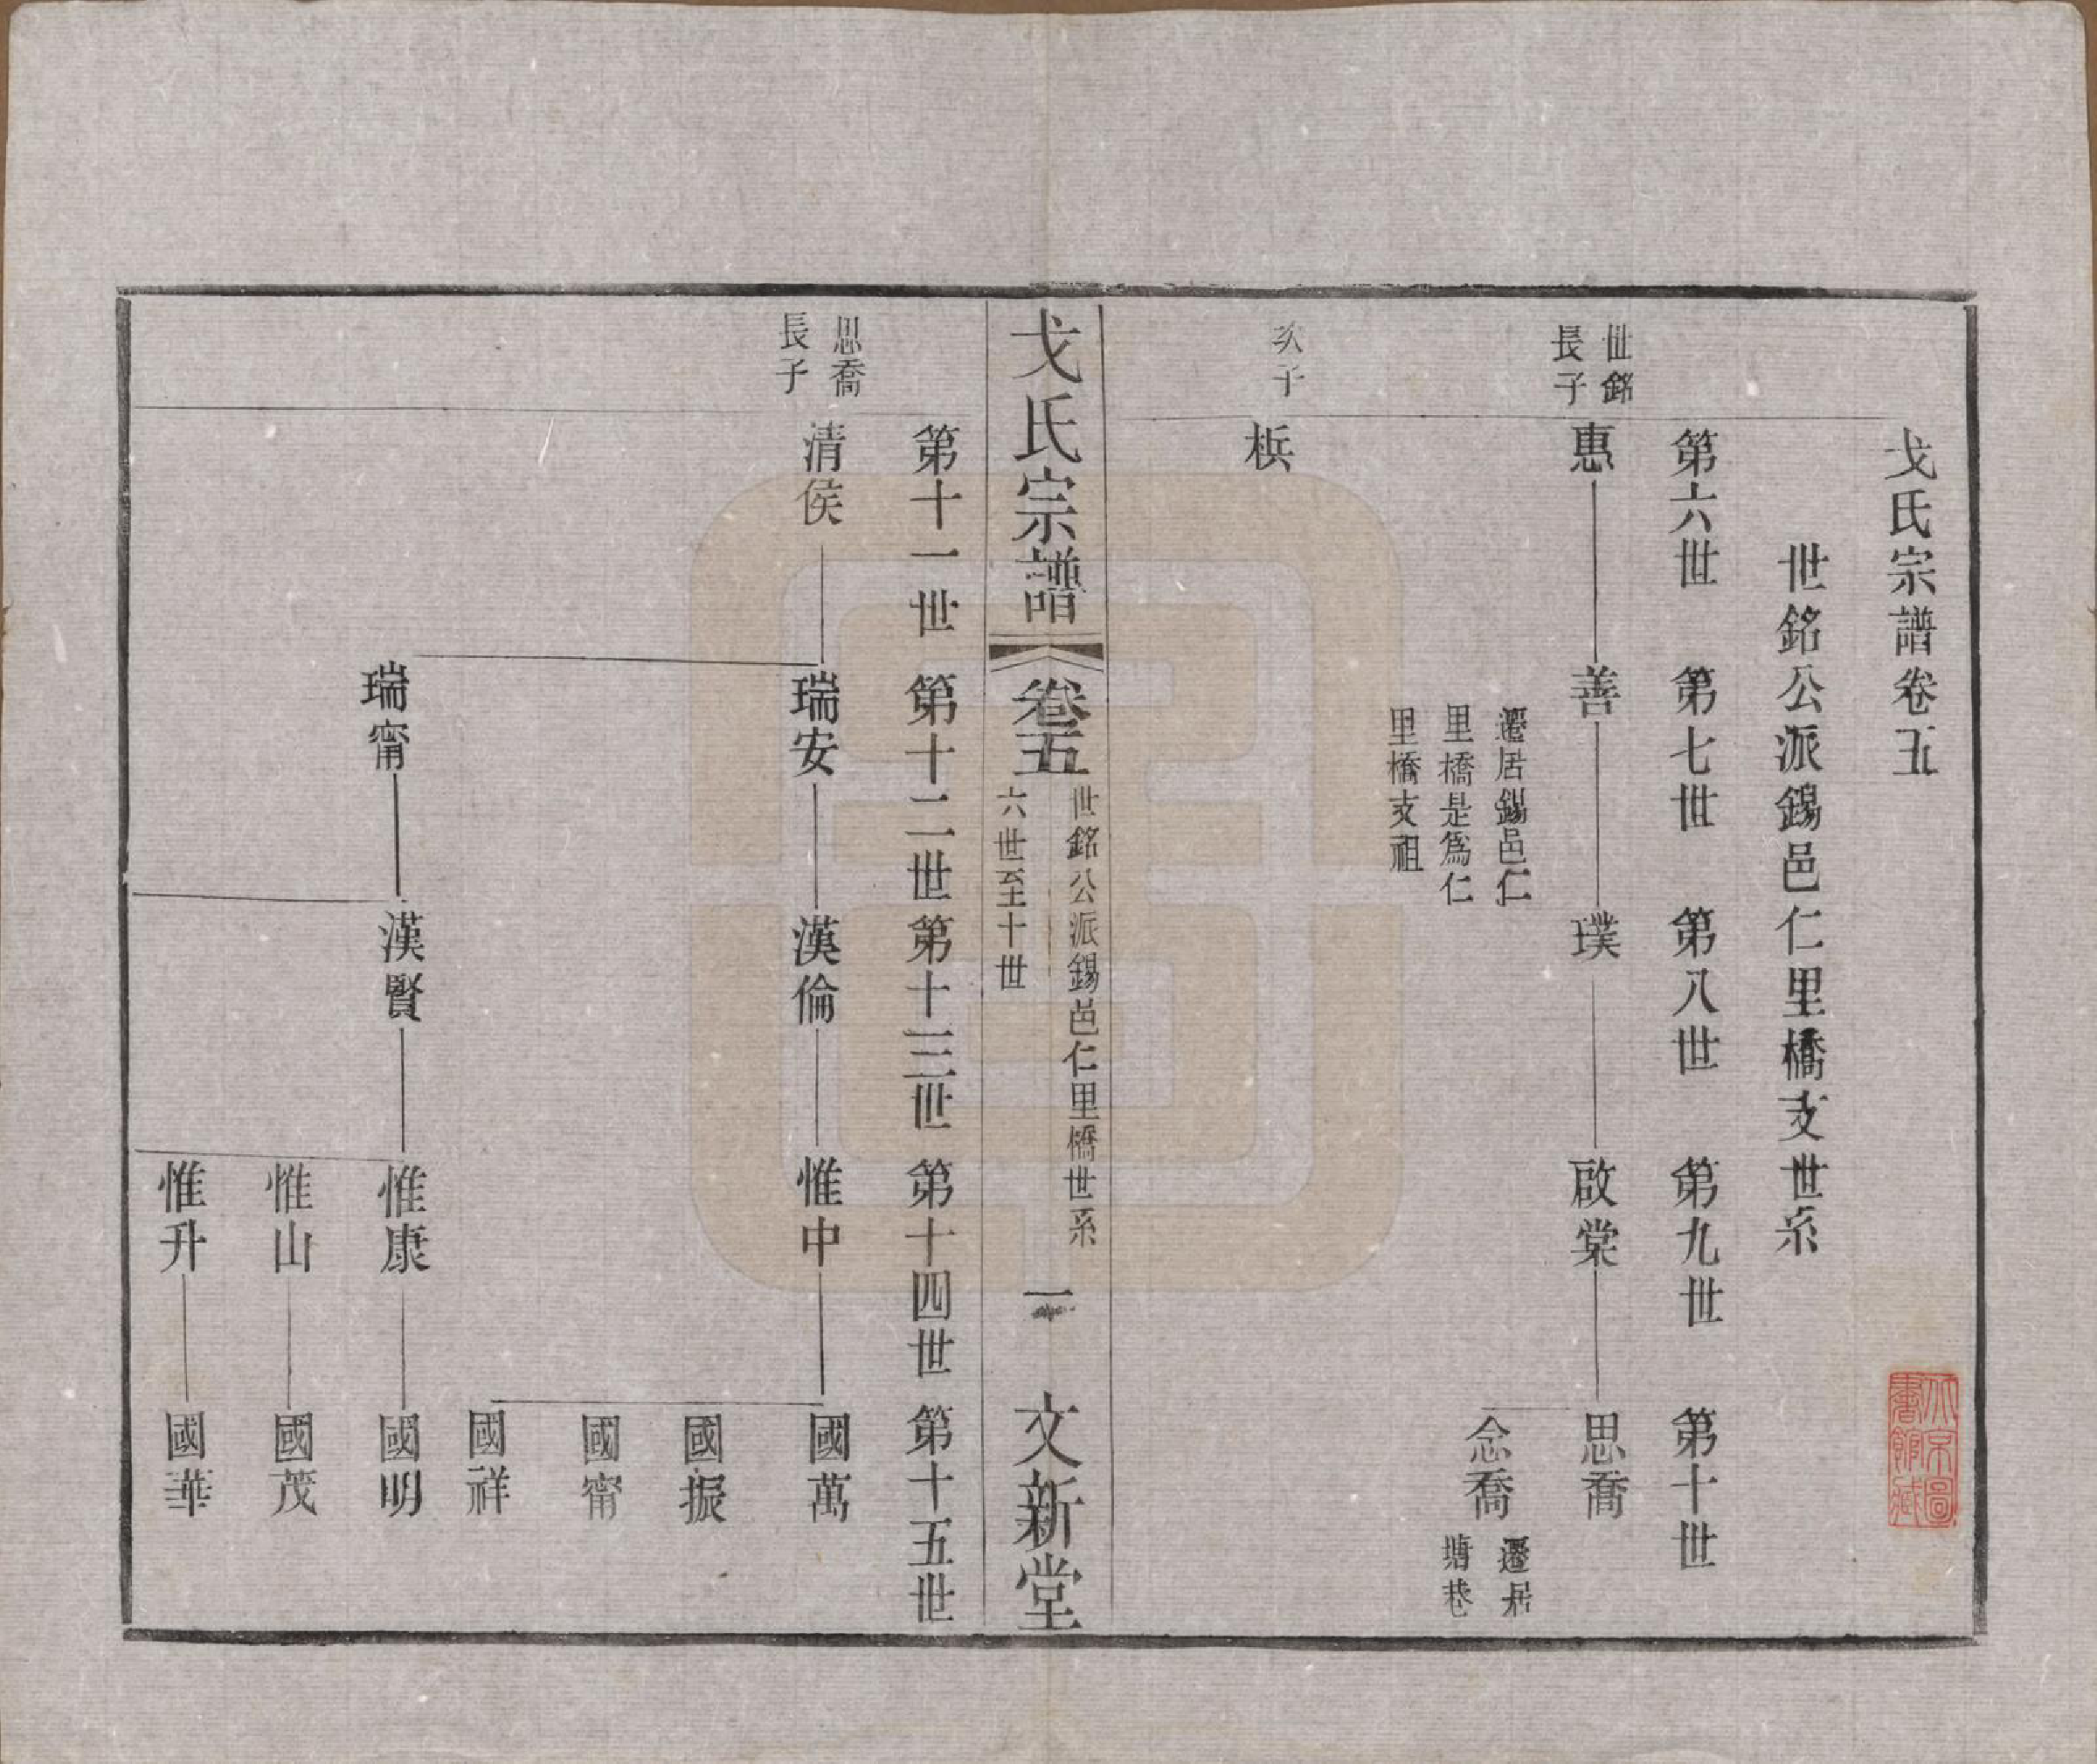 戈氏宗譜卷五
世銘公派錫邑仁里橋支世系
第六世
第七世
第八世
第九世
第十世
世銘
長子
惠
善
璞
啟棠
思喬
遷居錫邑仁
里橋是爲仁
里橋支祖
念喬
遷居
塘巷
次子
梹
戈氏宗譜
卷五
世銘公派錫邑仁里橋世系
六世至十世
一
文新堂
第十一世
第十二世
第十三世
第十四世
第十五世
思喬
長子
清侯
瑞安
漢倫
惟中
國萬
國振
國甯
國祥
瑞甯
漢賢
惟康
國明
惟山
國茂
惟升
國華
北京圖
書館藏